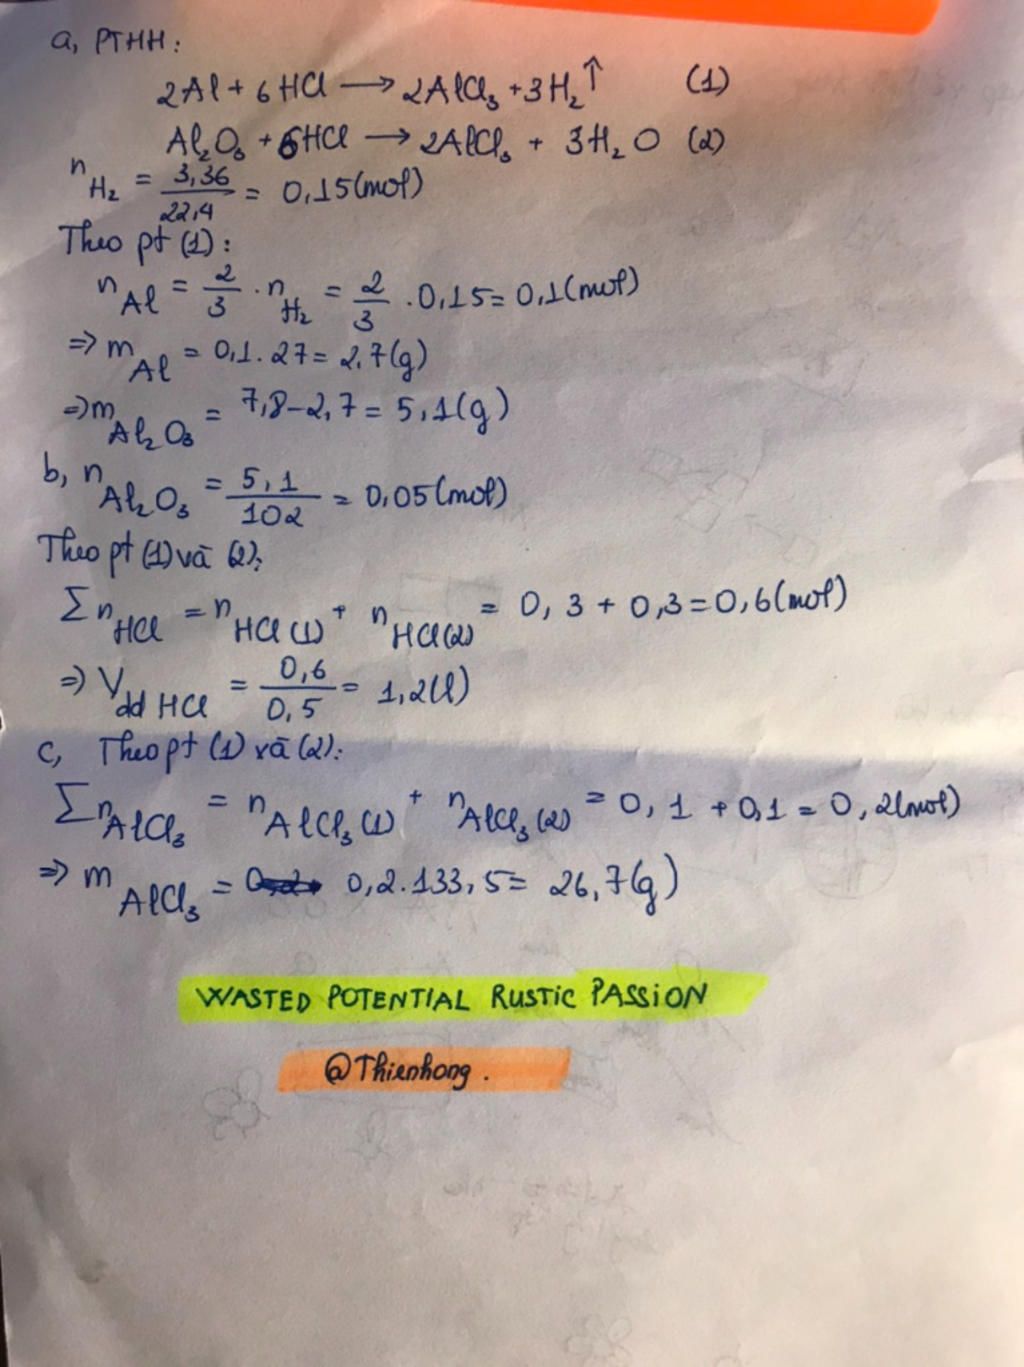 a, PTHH:
2Al + 6HCl → 2AlCl₃ + 3H₂↑ (1)
Al₂O₃ + 6HCl → 2AlCl₃ + 3H₂O (2)
n H₂ = 3,36/22,4 = 0,15(mol)
Theo pt (1):
n Al = 2/3 . n H₂ = 2/3 . 0,15 = 0,1(mol)
=> m Al = 0,1. 27 = 2,7(g)
=> m Al₂O₃ = 7,8-2,7 = 5,1(g)
b, n Al₂O₃ = 5,1/102 = 0,05(mol)
Theo pt (1) và (2):
Σ n HCl = n HCl (1) + n HCl (2) = 0,3 + 0,3 = 0,6(mol)
=> V dd HCl = 0,6/0,5 = 1,2(l)
c, Theo pt (1) và (2):
Σ n AlCl₃ = n AlCl₃ (1) + n AlCl₃ (2) = 0,1 + 0,1 = 0,2(mol)
=> m AlCl₃ = 0,2.133,5 = 26,7(g)
WASTED POTENTIAL RUSTIC PASSION
@Thienhong.